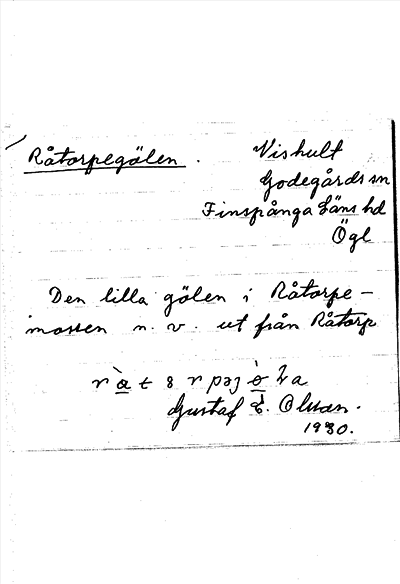 Råtorpegölen. Vishult
Godegårds sn
Finspånga Läns hd
Ögl
Den lilla gölen i Råtorpe-
mossen n. v. ut från Råtorp
Gustaf E. Olsson.
1930.